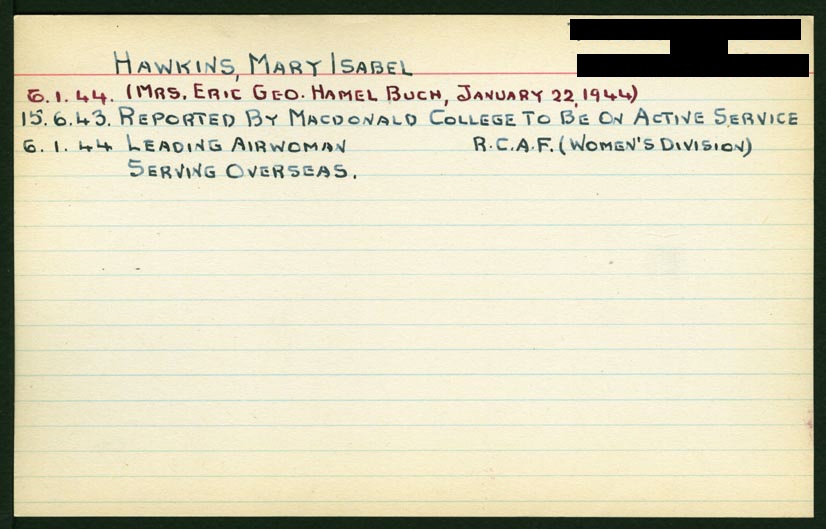 HAWKINS, MARY ISABEL
6.1.44. (MRS. ERIC GEO. HAMEL BUCH, JANUARY 22, 1944)
15.6.43. REPORTED BY MACDONALD COLLEGE TO BE ON ACTIVE SERVICE
6.1.44 LEADING AIRWOMAN R.C.A.F. (WOMEN'S DIVISION)
SERVING OVERSEAS.